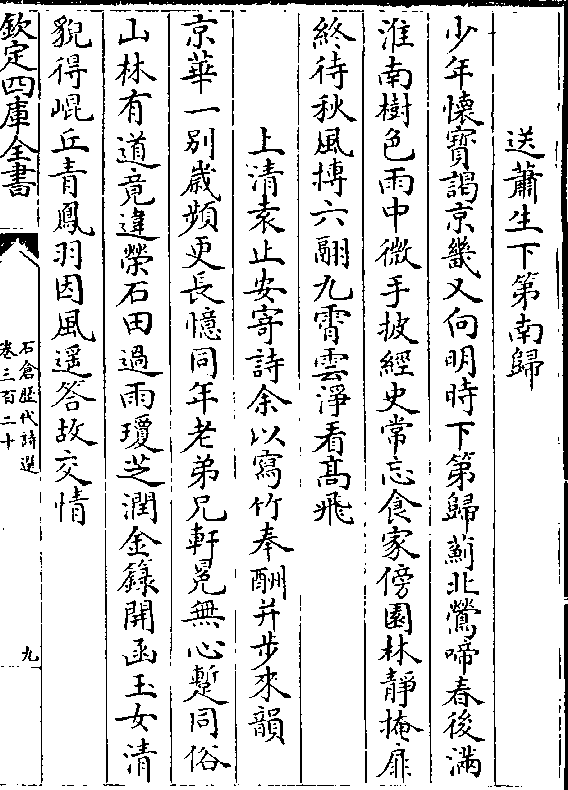 送蕭生下第南歸
少年懷寶謁京畿又向明時下第歸薊北鶯啼春後滿
淮南樹色雨中微手披經史常忘食家傍園林靜掩扉
終待秋風摶六翮九霄雲淨看髙飛
上清袁止安寄詩余以寫竹奉酬并步來韻
京華一别嵗頻更長憶同年老弟兄軒冕無心蹔同俗
山林有道竟違榮石田過雨瓊芝潤金籙開函玉女清
貌得崐丘青鳳羽因風遥答故交情
欽定四庫全書
石倉歴代詩選
卷三百二十
九